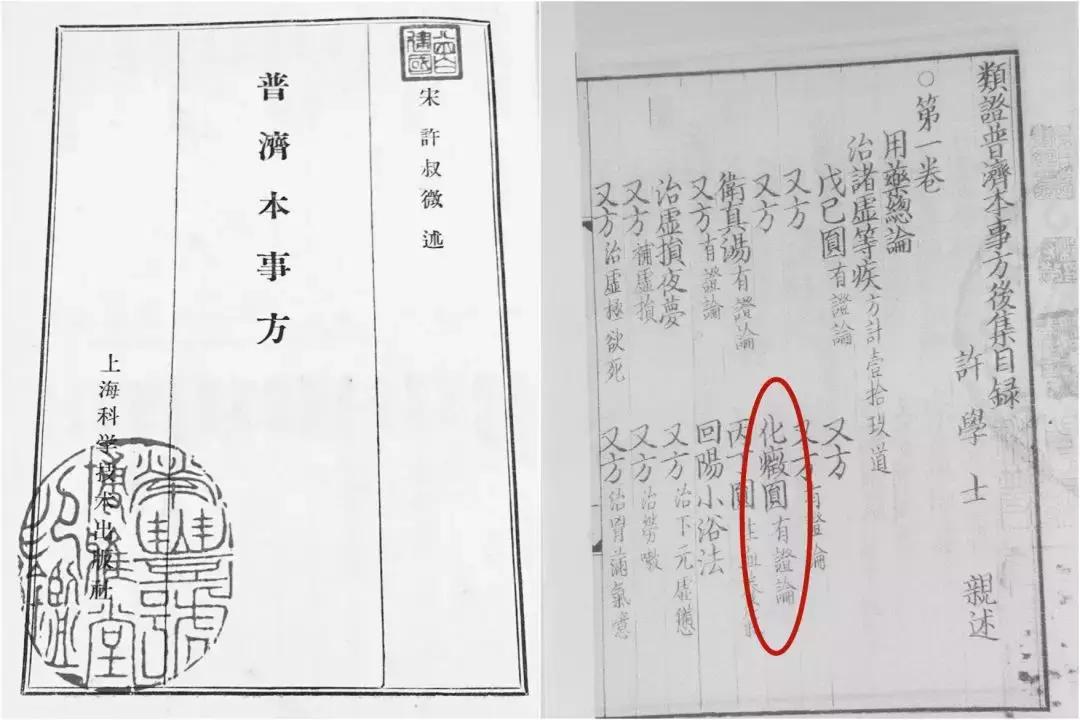 宋 許叔微 述
普濟本事方
上海科学技术出版社
類證普濟本事方後集目録
許學士 親述
○第一卷
用藥總論
治諸虛等疾 方計壹拾玖道
戊巳圓 有證論 又方
又方 又方 有證論
又方 化癥圓 有證論
衛真湯 有證論 圓
又方 有證論 回陽小浴法
治虛損夜夢 又方 治下元虛憊
又方 補虛損 又方 治勞嗽
又方 治虛極欲死 又方 治胃滿氣噫